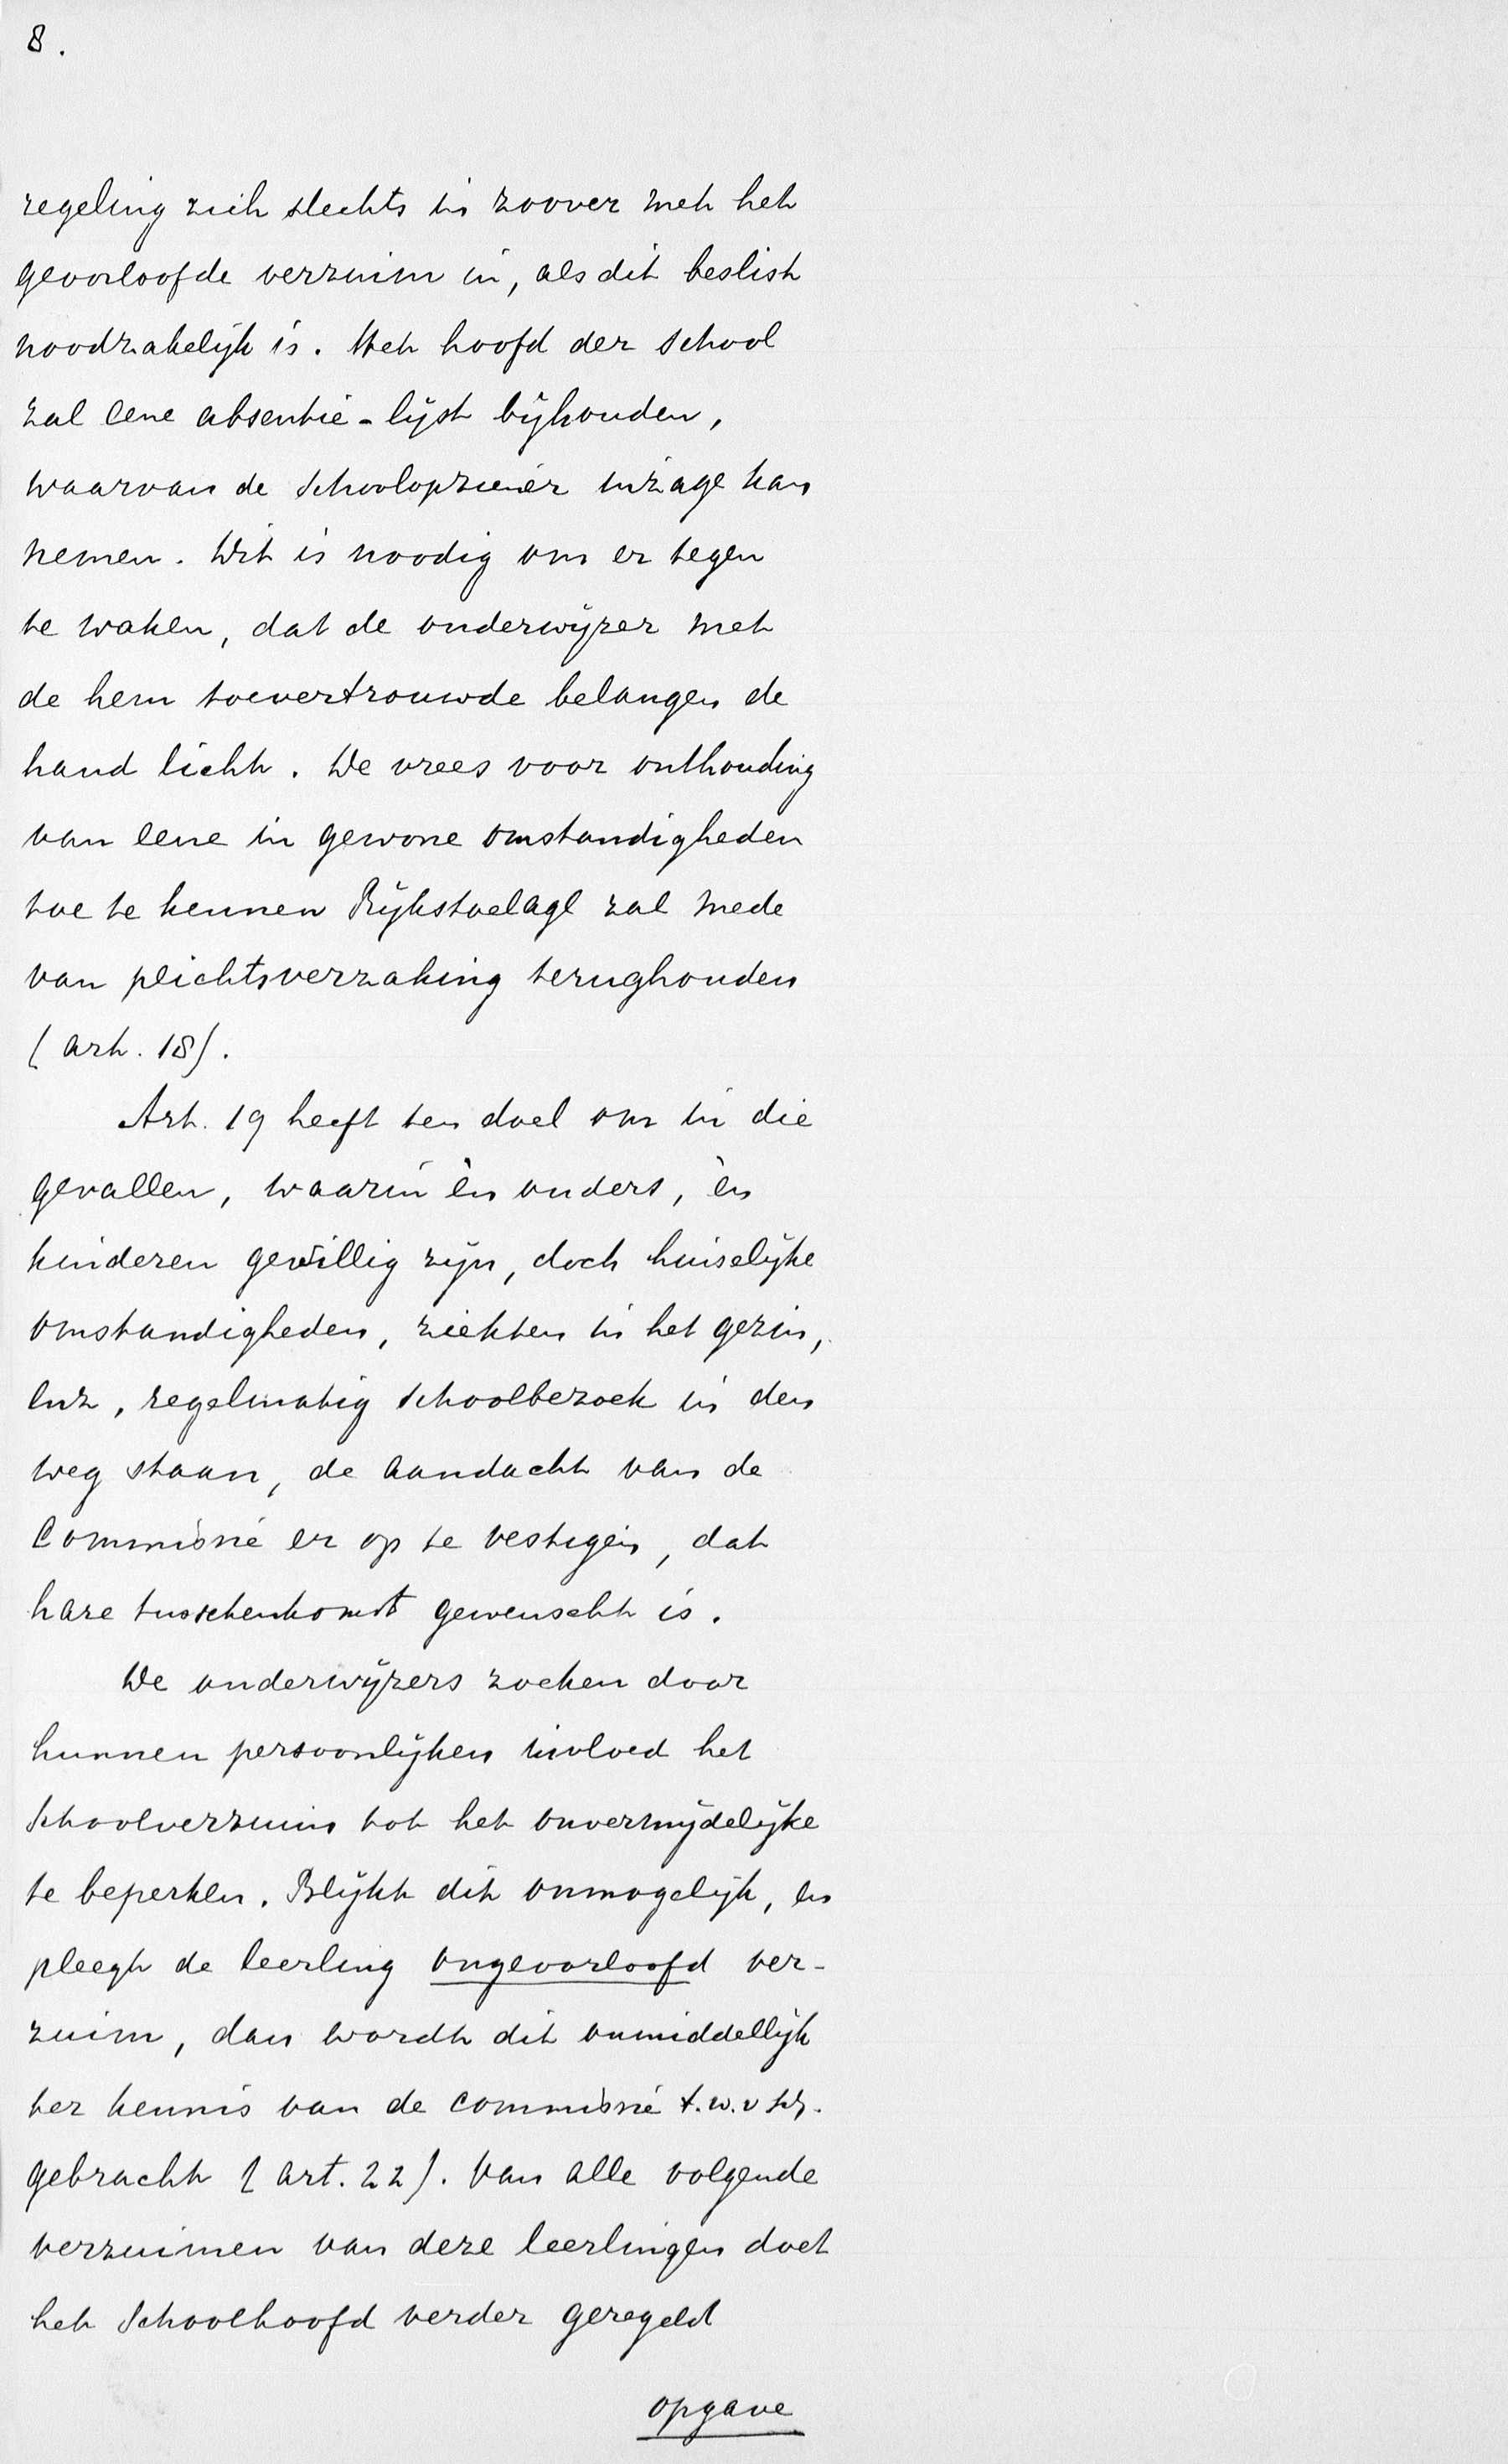 8.
regeling zich slechts in zoover met het
geoorloofde verzuim in, als dit beslist
noodzakelijk is. Het hoofd der school
zal eene absentie-lijst bijhouden,
waarvan de schoolopziener inzage kan
nemen. Dit is noodig om er tegen
te waken, dat de onderwijzer met
de hem toevertrouwde belangen de
hand licht. De vrees voor onthouding
van eene in gewone omstandigheden
toe te kennen Rijkstoelage zal mede
van plichtsverzaking terughouden
(art. 18).
Art. 19 heeft ten doel om in die
gevallen, waarin èn ouders, èn
kinderen gewillig zijn, doch huiselijke
omstandigheden, ziekten in het gezin,
enz, regelmatig schoolbezoek in den
weg staan, de aandacht van de
Commissie er op te vestigen, dat
hare tusschenkomst gewenscht is.
De onderwijzers zoeken door
hunnen persoonlijken invloed het
schoolverzuim tot het onvermijdelijke
te beperken. Blijkt dit onmogelijk, en
pleegt de leerling ongeoorloofd ver-
zuim, dan wordt dit onmiddellijk
ter kennis van de commissie t.w.v
gebracht (art. 22). Van alle volgende
verzuimen van deze leerlingen doet
het Schoolhoofd verder geregeld
opgave